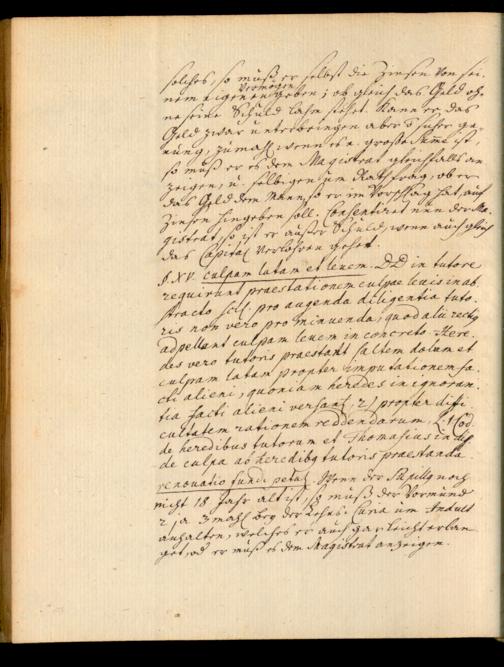 solches, so muß er selbst die Zinsen von sei-
nem eigenen Vermögen geben; ob gleich das Geld oh-
ne seine Schuld lahm stehet. Kann er das
Geld zwar unterbringen aber sicher ge-
nung, zumahl wenn es e. große Summe ist,
so muß er es dem Magistrat gleichfalls an-
zeigen, u. selbigen um Rath frag, ob er
das Geld dem Mann so er im Vorschlag hat, auf
Zinsen hingeben soll. Consentiret nun der Ma-
gistrat, so ist er außer Schuld, wenn auch gleich
das Capital verlohren gehet.
§. XV. culpam latam et levem. DD in tutore
requirunt praestationem culpae levis in ab-
stracto scil. pro augenda diligentia tuto-
ris non vero pro minuenda, quod alii rectig
adpellant culpam levem in concreto. Here-
des vero tutoris praestant saltem dolum et
culpam latam propter imputationem fa-
cti alieni, quoniam heredes in ignoran-
tia facti alieni versant, 2) propter diffi-
cultatem rationem reddendarum, l. 1 Cod.
de heredibus tutorum et Thomasius in disp
de culpa ab heredibg tutoris praestanda
renovatio fundi petat. Wenn der Pupillg noch
nicht 18 Jahr alt ist, so muß der Vormund
2, a 3 mahl bey der Lehns-Curia um Indult
anhalten, welches er auch gar leicht erlan-
get, od er muß es dem Magistrat anzeigen.